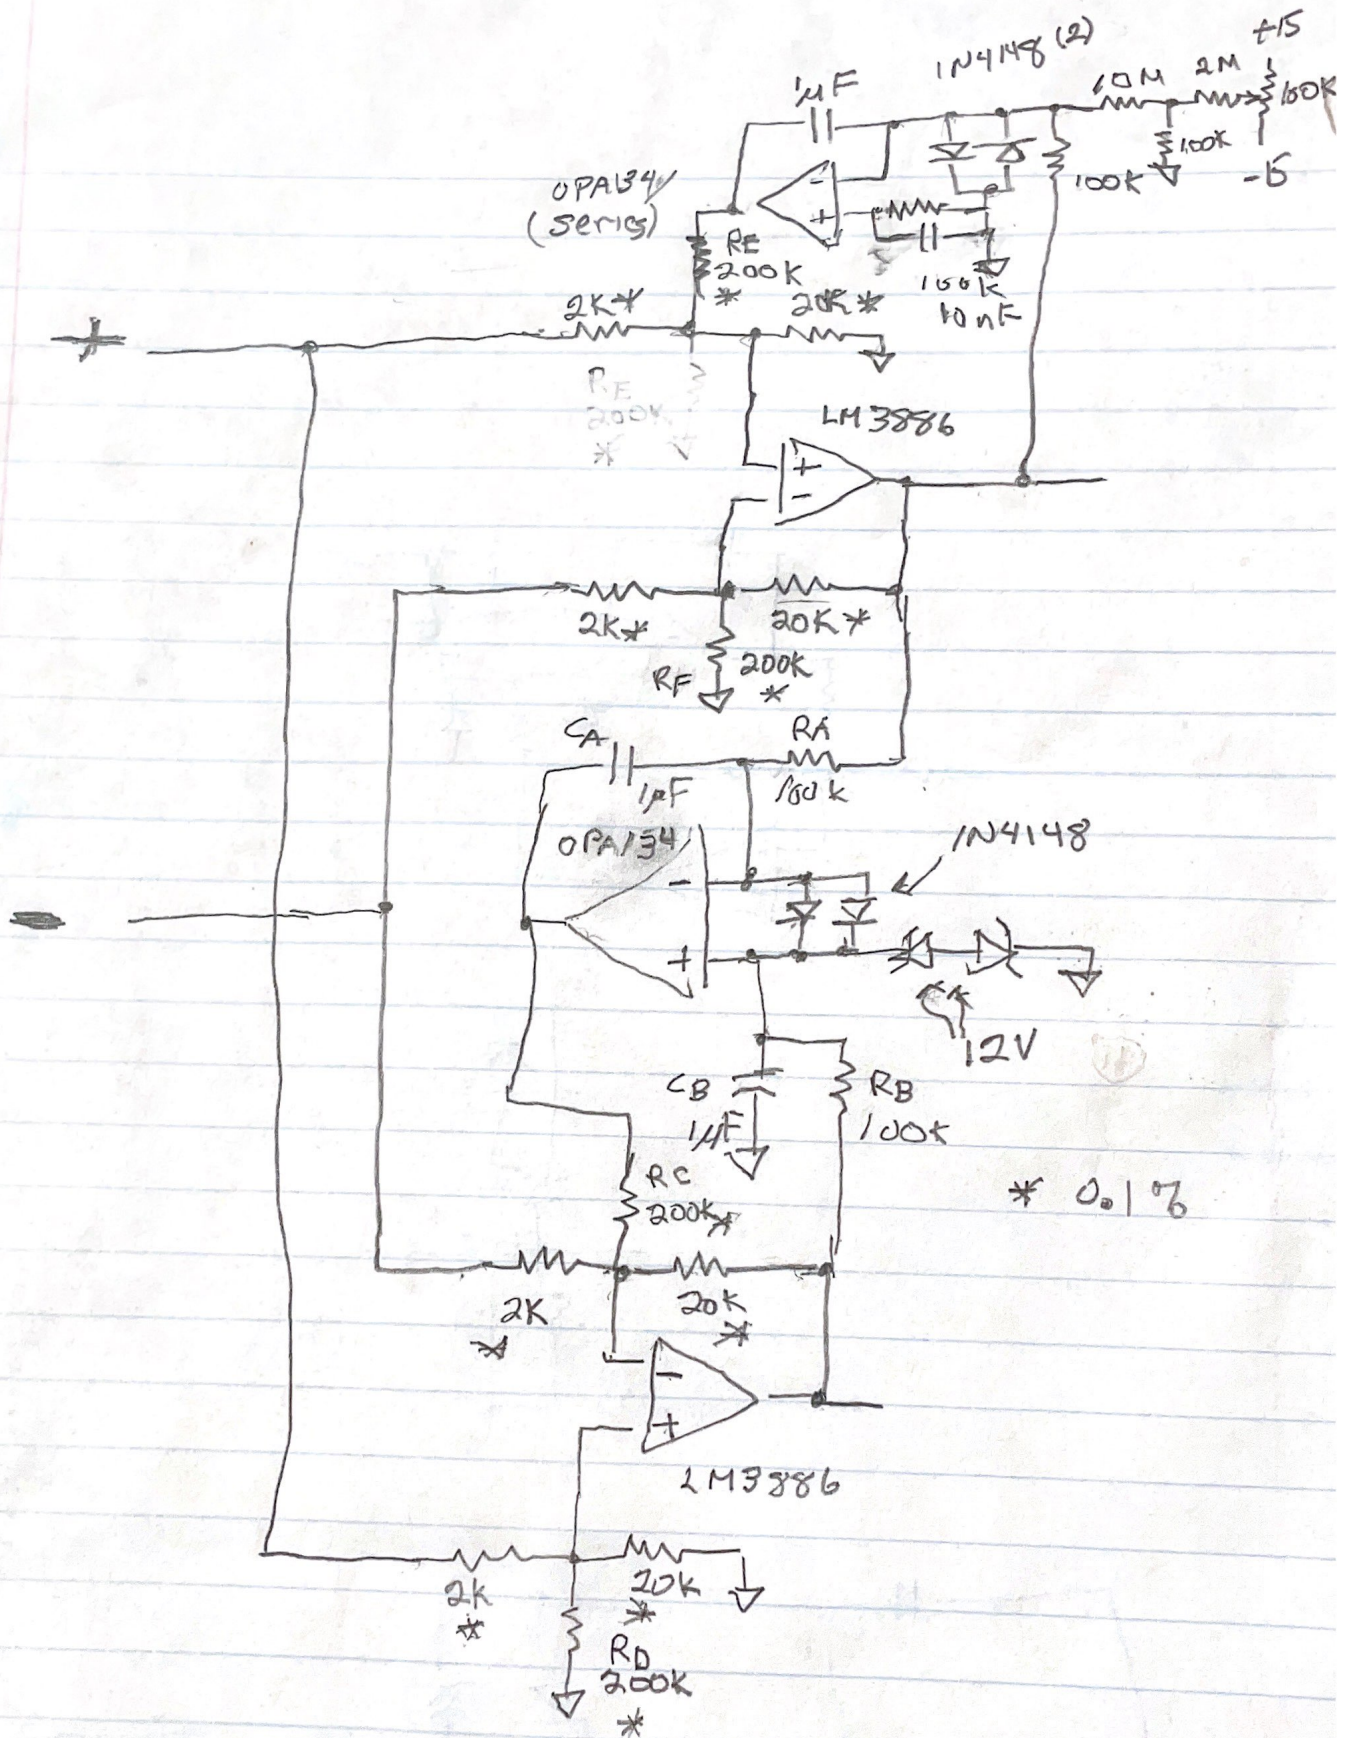 +15
1N4148 (2)
10M
2M
100K
1µF
100K
100K
-15
OPA134
(series)
RE
200K
*
-
+
100K
10nF
2K*
20K*
+
RE
200K
*
LM3886
+
-
2K*
20K*
RF
200K
*
CA
1µF
RA
100K
OPA134
1N4148
-
-
+
12V
CB
1µF
RB
100K
* 0.1%
RC
200K*
2K
*
20K
*
-
+
LM3886
2K
*
20K
*
RD
200K
*